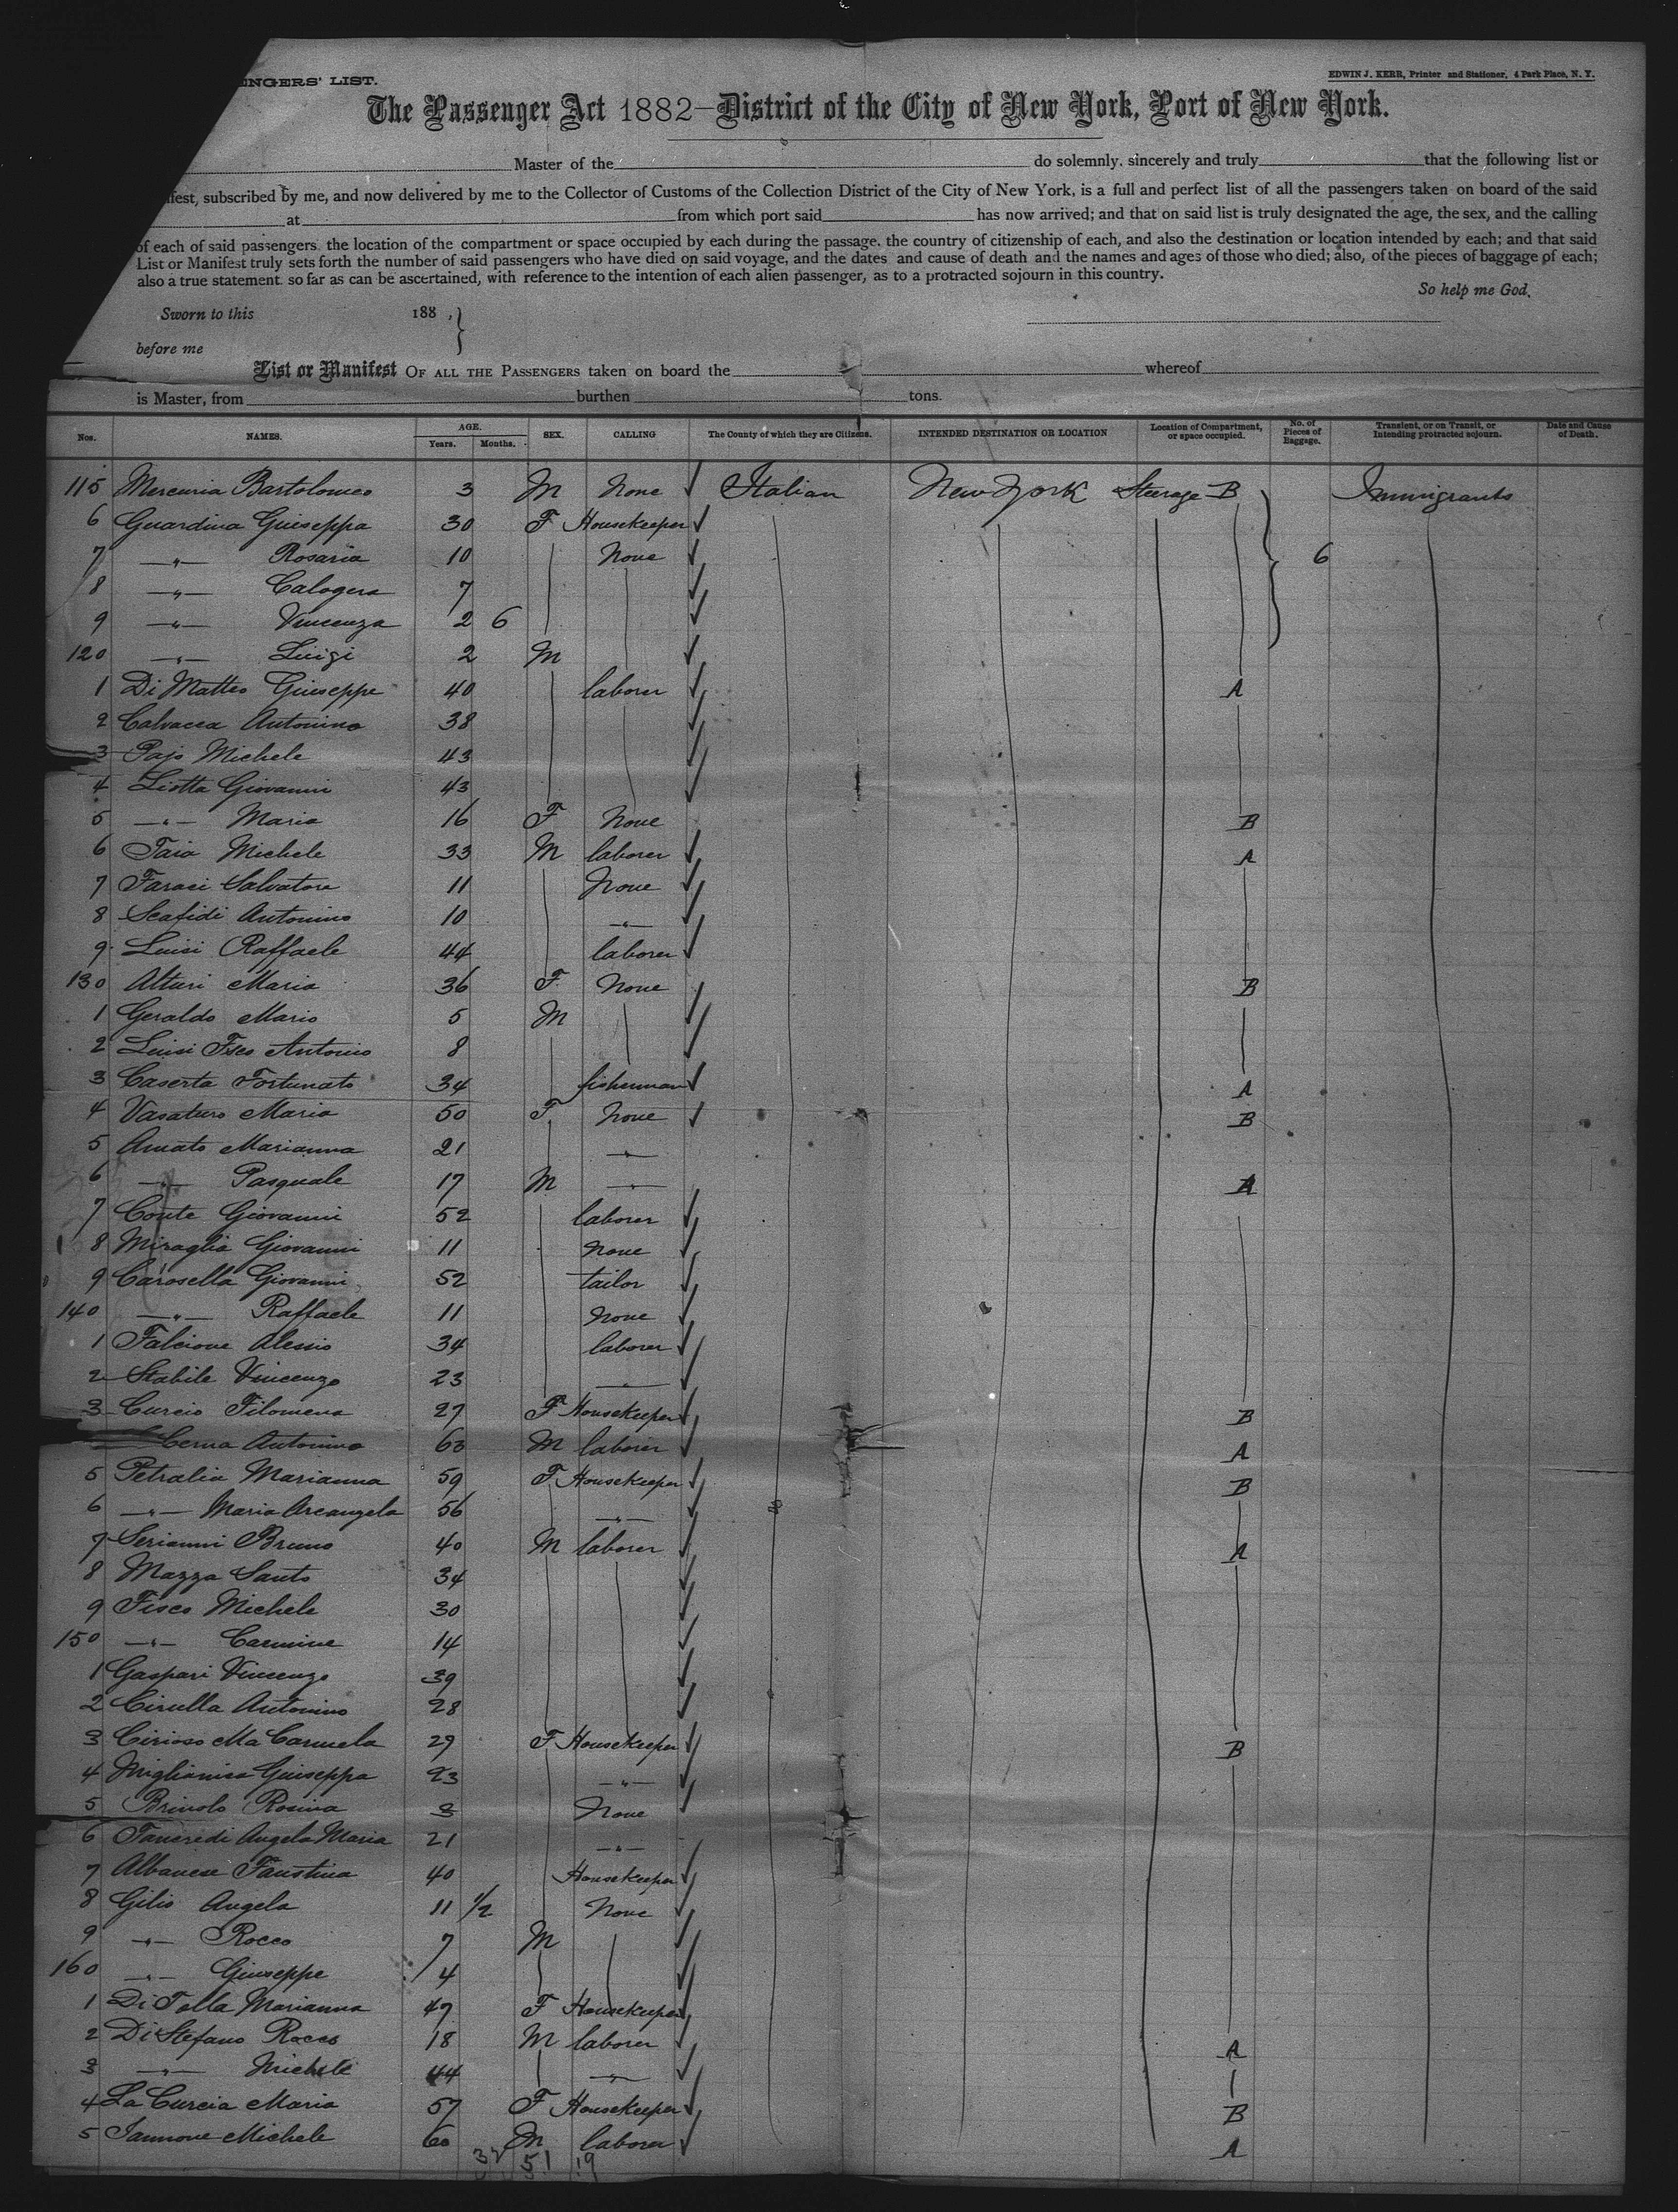 ENGERS' LIST.
EDWIN J. KERR, Printer and Stationer, 4 Park Place, N. Y.
The Passenger Act 1882—District of the City of New York, Port of New York.
Master of the do solemnly, sincerely and truly that the following list or
ifest, subscribed by me, and now delivered by me to the Collector of Customs of the Collection District of the City of New York, is a full and perfect list of all the passengers taken on board of the said
at from which port said has now arrived; and that on said list is truly designated the age, the sex, and the calling
of each of said passengers, the location of the compartment or space occupied by each during the passage, the country of citizenship of each, and also the destination or location intended by each; and that said
List or Manifest truly sets forth the number of said passengers who have died on said voyage, and the dates and cause of death and the names and ages of those who died; also, of the pieces of baggage of each;
also a true statement, so far as can be ascertained, with reference to the intention of each alien passenger, as to a protracted sojourn in this country.
So help me God,
Sworn to this 188 ,
before me
List or Manifest OF ALL THE PASSENGERS taken on board the whereof
is Master, from burthen tons.
Nos. NAMES. AGE. Years. Months. SEX. CALLING The County of which they are Citizens. INTENDED DESTINATION OR LOCATION Location of Compartment, or space occupied. No. of Pieces of Baggage. Transient, or on Transit, or Intending protracted sojourn. Date and Cause of Death.
115 Mercuria Bartolomeo 3 M None Italian New York Steerage B Immigrants
6 Guardina Giuseppa 30 F Housekeeper
7 —"— Rosaria 10 None 6
8 —"— Calogera 7
9 —"— Vincenza 2 6
120 —"— Luigi 2 M
1 Di Matteo Giuseppe 40 laborer A
2 Calvacca Antonino 38
3 Pajo Michele 43
4 Liotta Giovanni 43
5 —"— Maria 16 F None B
6 Taia Michele 33 M laborer A
7 Faraci Salvatore 11 None
8 Scafidi Antonino 10 —"—
9 Luisi Raffaele 44 laborer
130 Alturi Maria 36 F None B
1 Geraldo Mario 5 M
2 Luisi Fsco Antonio 8
3 Caserta Fortunato 34 fisherman A
4 Vasaturo Maria 50 F None B
5 Amato Marianna 21 —"—
6 —"— Pasquale 17 M —"— A
7 Conte Giovanni 52 laborer
8 Miraglia Giovanni 11 none
9 Carosella Giovanni 52 tailor
140 —"— Raffaele 11 none
1 Falcione Alessio 34 laborer
2 Stabile Vincenzo 23 —"—
3 Curcio Filomena 27 F Housekeeper B
Cerna Antonino 63 M laborer A
5 Petralia Marianna 59 F Housekeeper B
6 —"— Maria Arcangela 56 —"—
7 Serianni Bruno 40 M laborer A
8 Mazza Santo 34
9 Fisco Michele 30
150 —"— Carmine 14
1 Gaspari Vincenzo 39
2 Cirulla Antonino 28
3 Cirioso Ma Carmela 29 F Housekeeper B
4 Miglianisa Giuseppa 23 —"—
5 Brivolo Rosina 3 None
6 Tancredi Angela Maria 21 —"—
7 Albanese Faustina 40 Housekeeper
8 Gilio Angela 11 1/2 None
9 —"— Rocco 7 M
160 —"— Giuseppe 4
1 Di Tolla Marianna 47 F Housekeeper
2 Di Stefano Rocco 18 M laborer A
3 —"— Michele 44 —"—
4 La Curcia Maria 57 F Housekeeper B
5 Iannone Michele 60 M laborer A
32 51 19